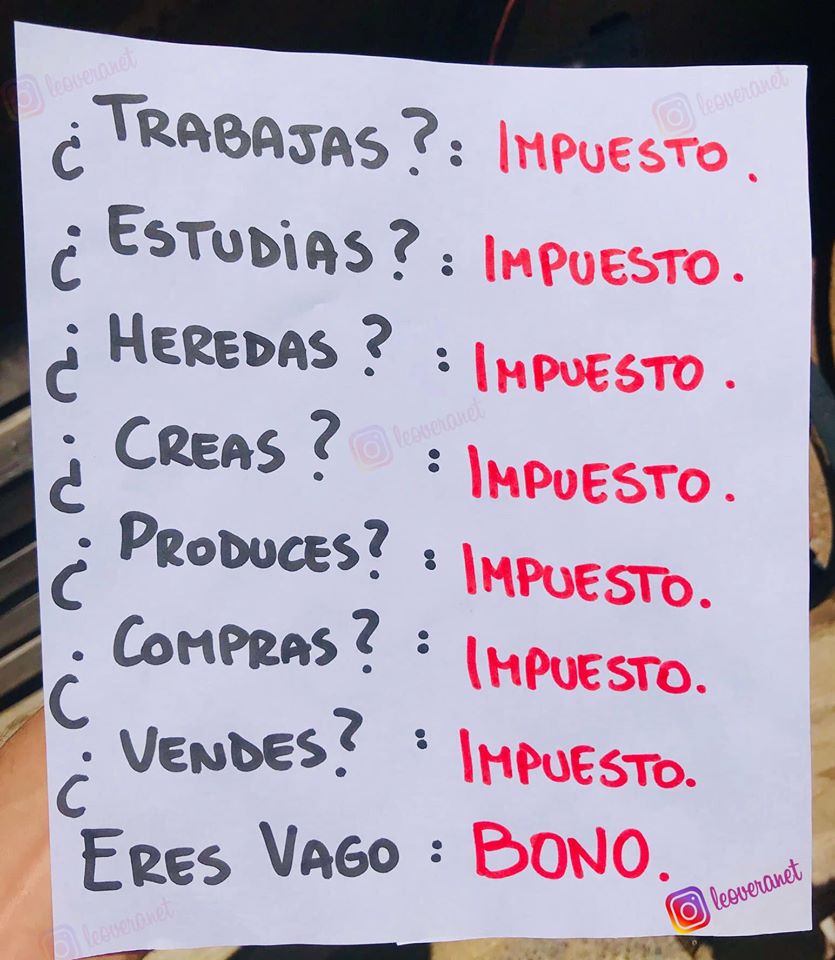 leoveranet
leoveranet
¿TRABAJAS?: IMPUESTO.
¿ESTUDiAS?: IMPUESTO.
¿HEREDAS?: IMPUESTO.
¿CREAS?: IMPUESTO.
leoveranet
¿PRODUCES?: IMPUESTO.
¿COMPRAS?: IMPUESTO.
¿VENDES?: IMPUESTO.
ERES VAGO: BONO.
leoveranet
leoveranet